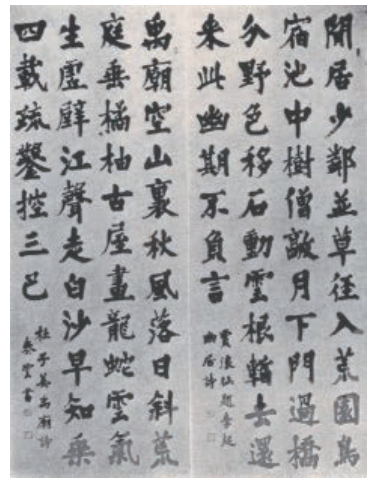 閒居少鄰並草徑入荒園鳥
宿池中樹僧敲月下門過橋
分野色移石動雲根暫去還
来此幽期不負言
賈浪仙題李凝
幽居詩
禹廟空山裏秋風落日斜荒
庭垂橘柚古屋畫龍蛇雲氣
生虛壁江聲走白沙早知乘
四載疏鑿控三巴
杜子美禹廟詩
書